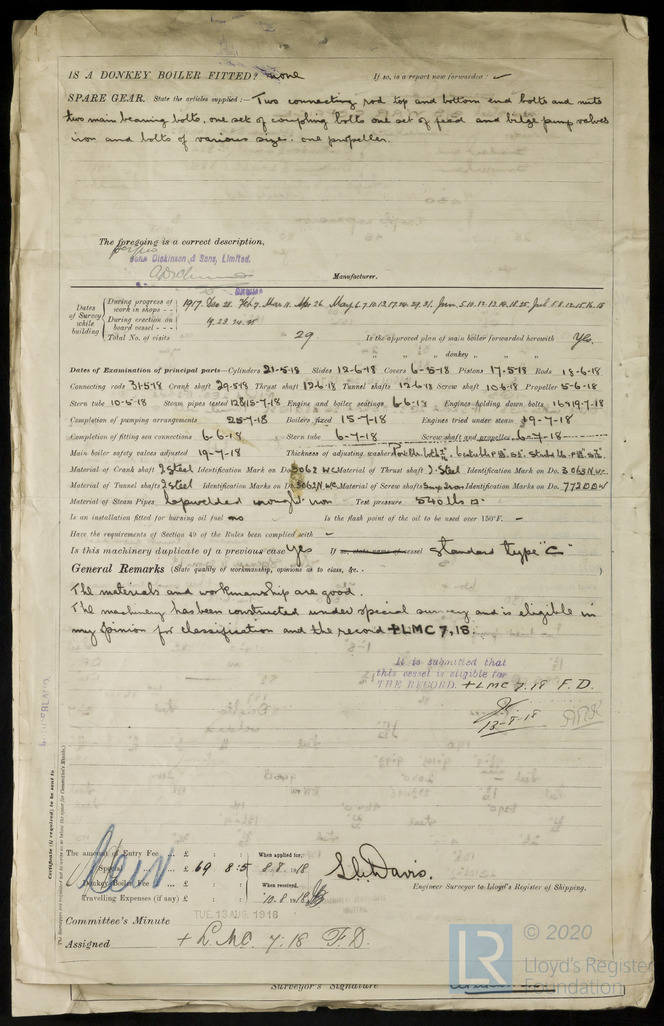 IS A DONKEY BOILER FITTED? none If so, is a report now forwarded: ✓
SPARE GEAR. State the articles supplied:— Two connecting rod top and bottom end bolts and nuts
two main bearing bolts, one set of coupling bolts one set of feed and bilge pump valves
iron and bolts of various sizes. one propeller.
The foregoing is a correct description,
John Dickinson & Sons, Limited.
Manufacturer.
Director
Dates of Survey while building
During progress of work in shops - - 1917. Dec 28. Feb 7. Mar 11. Apr 26. May 6.7.10.13.17.21.29.31. Jun. 5.10.12.13.14.18.25. Jul 5.8.12.15.16.18
During erection on board vessel - - - 19.23.24.25
Total No. of visits 29 Is the approved plan of main boiler forwarded herewith Yes.
" " " donkey " " "
Dates of Examination of principal parts—Cylinders 21-5-18 Slides 12-6-18 Covers 6-5-18 Pistons 17-5-18 Rods 13-6-18
Connecting rods 31-5-18 Crank shaft 29-5-18 Thrust shaft 12-6-18 Tunnel shafts 12-6-18 Screw shaft 10-6-18 Propeller 5-6-18
Stern tube 10-5-18 Steam pipes tested 12&15-7-18 Engine and boiler seatings 6-6-18 Engines holding down bolts 16&19-7-18
Completion of pumping arrangements 25-7-18 Boilers fixed 15-7-18 Engines tried under steam 19-7-18
Completion of fitting sea connections 6-6-18 Stern tube 6-7-18 Screw shaft and propeller 6-7-18
Main boiler safety valves adjusted 19-7-18 Thickness of adjusting washers
Material of Crank shaft I Steel Identification Mark on Do. 3062 WC Material of Thrust shaft I Steel Identification Mark on Do. 3063 N.W.C.
Material of Tunnel shafts I Steel Identification Marks on Do. 3062 N WC. Material of Screw shafts Scrap Iron Identification Marks on Do. 772 DDW
Material of Steam Pipes Lapwelded wrought iron Test pressure 540 lbs □"
Is an installation fitted for burning oil fuel no Is the flash point of the oil to be used over 150°F. -
Have the requirements of Section 49 of the Rules been complied with -
Is this machinery duplicate of a previous case Yes If so, state name of vessel Standard type "C"
General Remarks (State quality of workmanship, opinions as to class, &c. - )
The materials and workmanship are good.
The machinery has been constructed under special survey and is eligible in
my opinion for classification and the record +LMC 7.18.
It is submitted that
this vessel is eligible for
THE RECORD. + LMC 7.18 F.D.
13-8-18
Certificate (if required) to be sent to
The amount of Entry Fee ... £ : : When applied for,
Special ... £ 69 8 : 5 8.8.1918
Donkey Boiler Fee ... £ : : When received,
Travelling Expenses (if any) £ : : 10.8.1918
Engineer Surveyor to Lloyd's Register of Shipping.
Committee's Minute TUE. 13 AUG. 1918
Assigned + L.M.C. 7.18 F.D.
Surveyor's Signature
LR © 2020
Lloyd's Register
Foundation